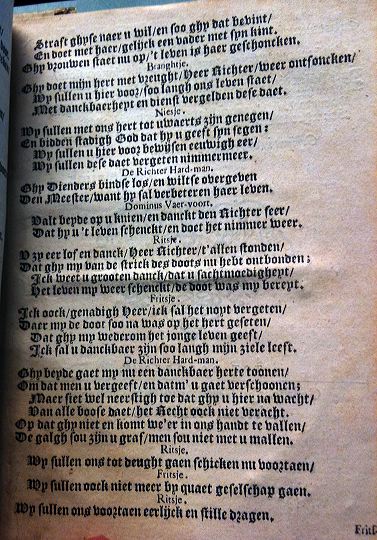 Straft ghyse naer u wil/en soo ghy dat bevint/
En doet met haer/gelijck een vader met syn kint.
Ghy vrouwen staet nu op/'t leven is haer geschoncken.
Branghtje.
Ghy doet mijn hert met vreught/Heer Richter/weer ontfoncken/
Wy sullen u hier voor/soo langh ons leven staet/
Met danckbaerheyt en dienst vergelden dese daet.
Niesje.
Wy sullen met ons hert tot uwaerts zijn genegen/
En bidden stadigh God dat hy u geeft syn segen:
Wy sullen u hier voor bewijsen eeuwigh eer/
Wy sullen dese daet vergeten nimmermeer.
De Richter Hard-man.
Ghy Dienders bindse los/en wiltse overgeven
Den Meester/want hy sal verbeteren haer leven.
Dominus Vaer-voort.
Valt beyde op u knien/en danckt den Richter seer/
Dat hy u 't leven schenckt/en doet het nimmer weer.
Ritsje.
Uzy eer lof en danck/Heer Richter/t'allen stonden/
Dat ghy my van de strick des doots nu hebt ontbonden;
Ick weet u grooten danck/dat u sachtmoedigheyt/
Het leven my weer schenckt/de doot was my bereyt.
Fritsje.
Ick oock/genadigh Heer/ick sal het noyt vergeten/
Daer my de doot soo na was op het hert geseten/
Dat ghy my wederom het jonge leven geeft/
Ick sal u danckbaer zijn soo langh mijn ziele leeft.
De Richter Hard-man.
Ghy beyde gaet my nu een danckbaer herte toonen/
Om dat men u vergeeft/en datm' u gaet verschoonen;
Maer siet wel neerstigh toe dat ghy u hier na wacht/
Van alle boose daet/het Recht oock niet veracht.
Op dat ghy niet en komt we'er in ons handt te vallen/
De galgh sou zijn u graf/men sou niet met u mallen.
Ritsje.
Wy sullen ons tot deught gaen schicken nu voortaen/
Fritsje.
Wy sullen oock niet meer by quaet geselschap gaen.
Ritsje.
Wy sullen ons voortaen eerlijck en stille dragen.
Fritf-